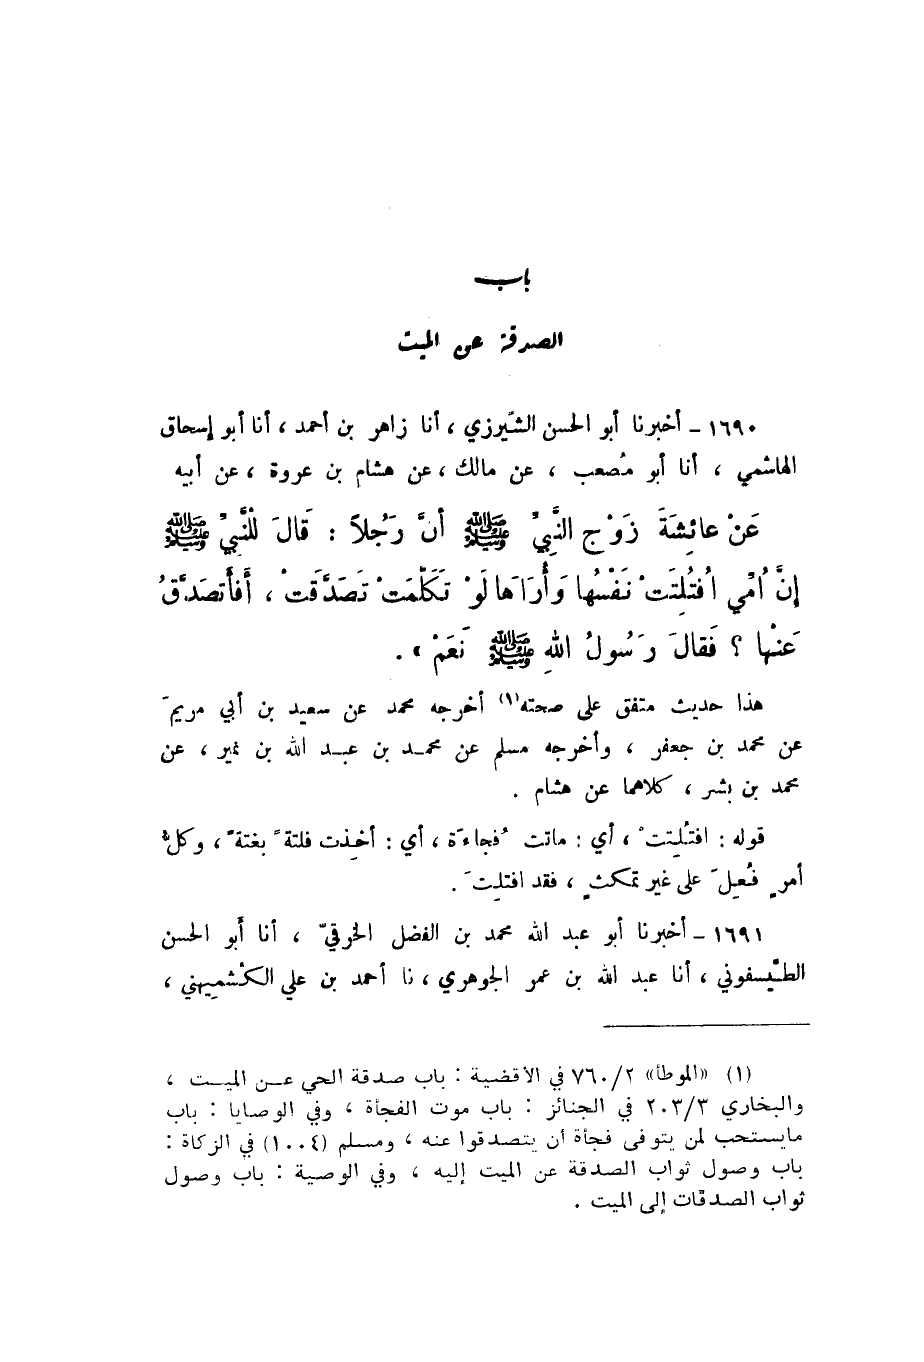 باب
الصدقة عن الميت
١٦٩٠ - أخبرنا أبو الحسن الشِّيرزي ، أنا زاهر بن أحمد ، أنا أبو إسحاق
الهاشمي ، أنا أبو مُصعب ، عن مالك ، عن هشام بن عروة ، عن أبيه
عَنْ عائِشَةَ زَوْجِ النَّبِيِّ ﷺ أَنَّ رَجُلاً : قَالَ لِلنَّبِيِّ ﷺ
إنَّ أُمِّي افْتُلِتَتْ نَفْسُها وَأُرَاهَا لَوْ تَكَلَّمَتْ تَصَدَّقَتْ ، أَفَأَتَصَدَّقُ
عَنْها ؟ فَقالَ رَسُولُ اللهِ ﷺ نَعَمْ » .
هذا حديث متفق على صحته(١) أخرجه محمد عن سعيد بن أبي مريمَ
عن محمد بن جعفر ، وأخرجه مسلم عن محمد بن عبد الله بن نمير ، عن
محمد بن بشر ، كلاهما عن هشام .
قوله : افتُلِتتْ ، أي : ماتت فُجاءَة ، أي : أخِذت فلتةً بغتةً ، وكلُّ
أمرٍ فُعِلَ على غير تمكثٍ ، فقد افتلِتَ .
١٦٩١ - أخبرنا أبو عبد الله محمد بن الفضل الخرقيّ ، أنا أبو الحسن
الطَّيسفوني ، أنا عبد الله بن عمر الجوهري ، نا أحمد بن علي الكُشمِيهني ،
(١) «الموطأ» ٧٦٠/٢ في الأقضية : باب صدقة الحي عن الميت ،
والبخاري ٢٠٣/٣ في الجنائز : باب موت الفجأة ، وفي الوصايا : باب
مايستحب لمن يتوفى فجأة أن يتصدقوا عنه ، ومسلم (١٠٠٤) في الزكاة :
باب وصول ثواب الصدقة عن الميت إليه ، وفي الوصية : باب وصول
ثواب الصدقات إلى الميت .